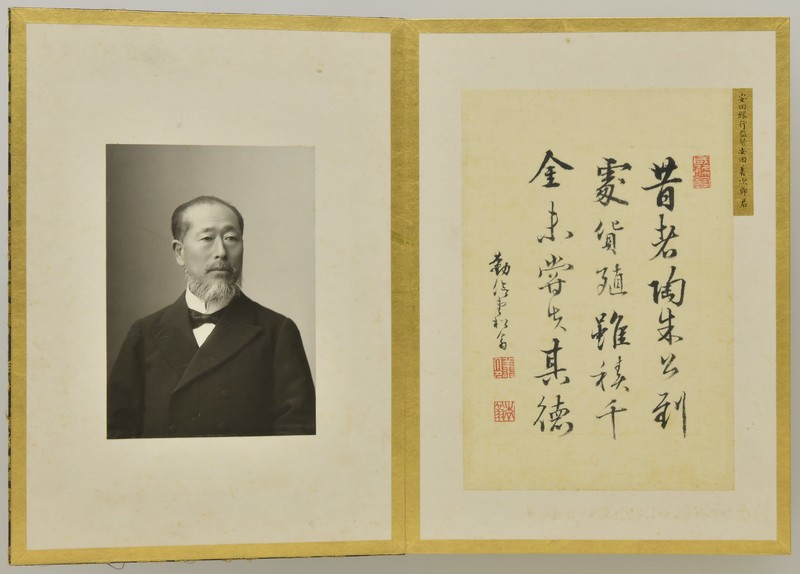 安田銀行監事安田善次郎君
昔者陶朱公到
處貨殖雖積千
金未嘗失其德
勤儉堂松翁